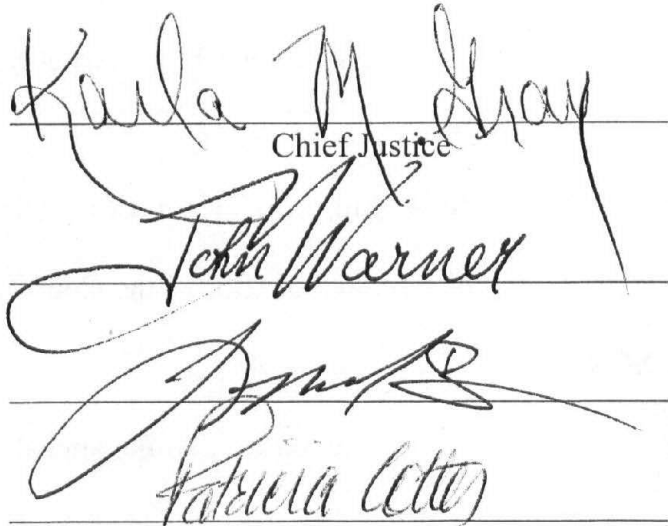 Karla M. Gray
Chief Justice
John Warner
Patricia Cotter